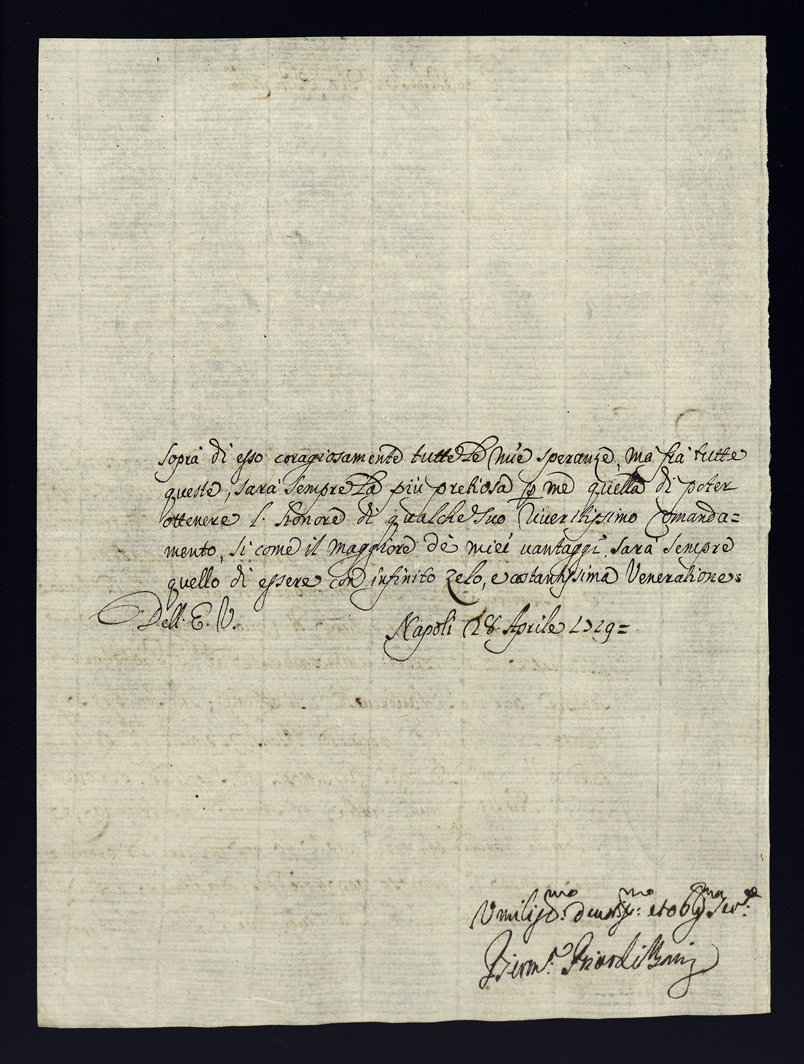 sopra di esso coragiosamente tutte le mie speranze, mà frà tutte
queste, sarà sempre la più pretiosa p me quella di poter
ottenere l'honore di qualche suo riveritissimo Comanda=
mento, si come il maggiore de miei vantaggi sarà sempre
quello di essere con infinito zelo, e costantissima Veneratione=
Dell' E. V. Napoli 28 Aprile 1729=
Umiliss.mo devotiss.mo et obg.mo Ser.e